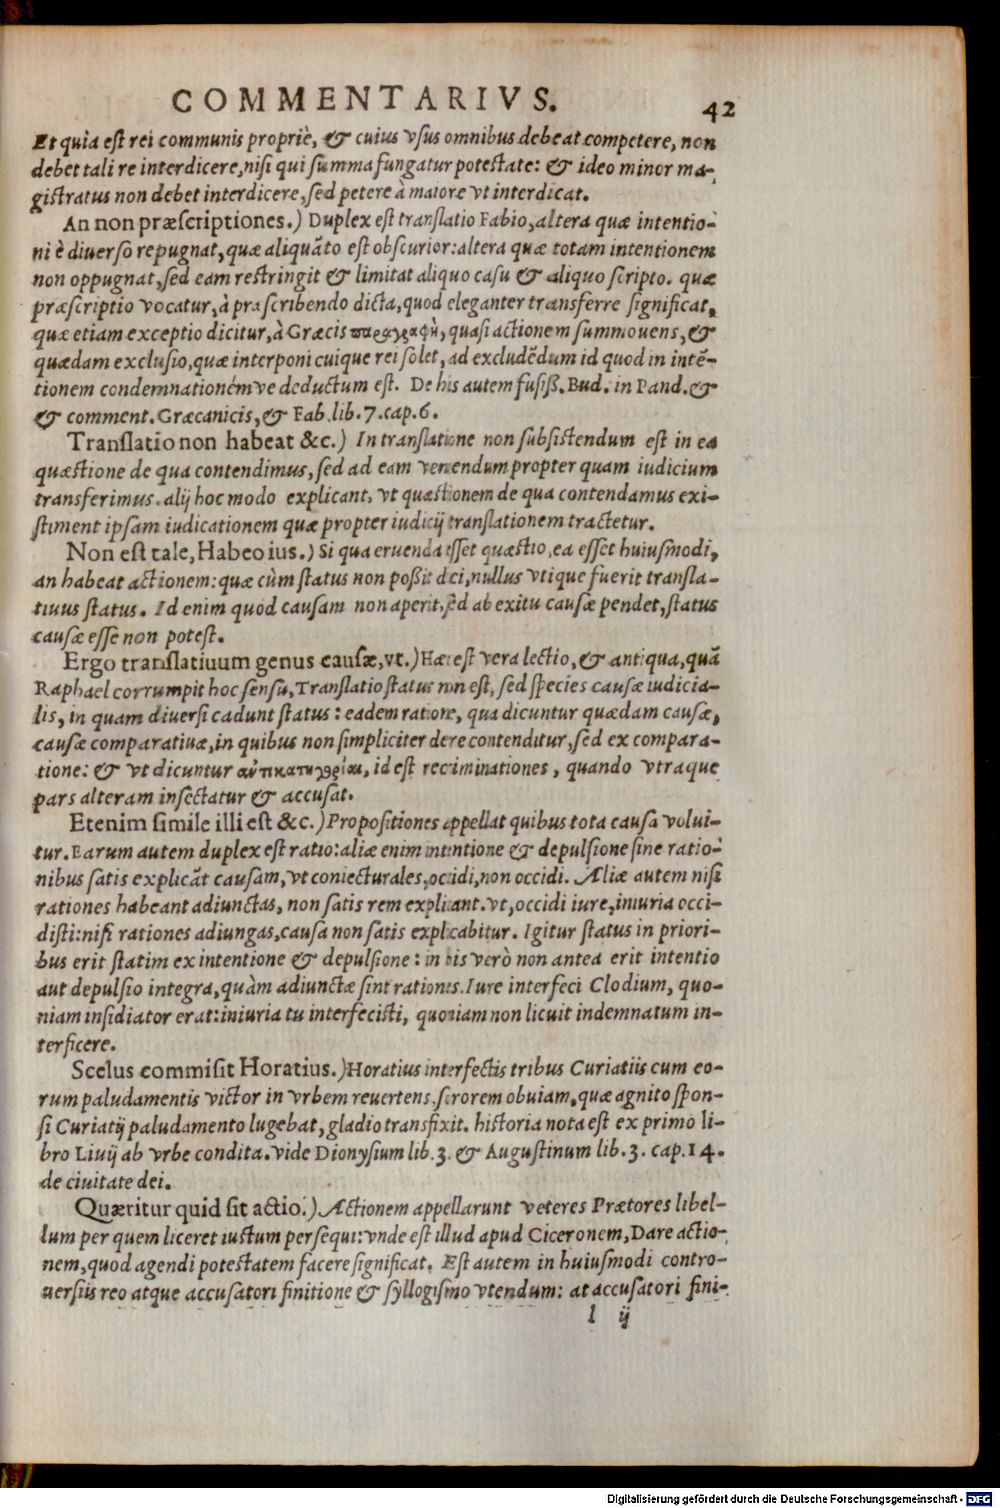 COMMENTARIVS. 42
Et quia est rei communis propriè, & cuius vsus omnibus debeat competere, non
debet tali re interdicere, nisi qui summa fungatur potestate: & ideo minor ma-
gistratus non debet interdicere, sed petere à maiore vt interdicat.
An non præscriptiones.) Duplex est translatio Fabio, altera quæ intentio-
ni è diuerso repugnat, quæ aliquãto est obscurior: altera quæ totam intentionem
non oppugnat, sed eam restringit & limitat aliquo casu & aliquo scripto. quæ
præscriptio vocatur, à præscribendo dicta, quod eleganter transferre significat,
quæ etiam exceptio dicitur, à Græcis παραγραφὴ, quasi actionem summouens, &
quædam exclusio, quæ interponi cuique rei solet, ad excludẽdum id quod in intẽ-
tionem condemnationémve deductum est. De his autem fusiß. Bud. in Pand. &
& comment. Græcanicis, & Fab. lib. 7. cap. 6.
Translatio non habeat &c.) In translatione non subsistendum est in ea
quæstione de qua contendimus, sed ad eam veniendum propter quam iudicium
transferimus. alij hoc modo explicant, vt quæstionem de qua contendamus exi-
stiment ipsam iudicationem quæ propter iudicij translationem tractetur.
Non est tale, Habeo ius.) Si qua eruenda esset quæstio, ea esset huiusmodi,
an habeat actionem: quæ cùm status non poßit dici, nullus vtique fuerit transla-
tiuus status. Id enim quod causam non aperit, sed ab exitu causæ pendet, status
causæ esse non potest.
Ergo translatiuum genus causæ, vt.) Hæc est vera lectio, & antiqua, quã
Raphael corrumpit hoc sensu, Translatio status non est, sed species causæ iudicia-
lis, in quam diuersi cadunt status: eadem ratione, qua dicuntur quædam causæ,
causæ comparatiuæ, in quibus non simpliciter de re contenditur, sed ex compara-
tione: & vt dicuntur αὐτικατηγορίαι, id est recriminationes, quando vtraque
pars alteram insectatur & accusat.
Etenim simile illi est &c.) Propositiones appellat quibus tota causa volui-
tur. Earum autem duplex est ratio: aliæ enim intentione & depulsione sine ratio-
nibus satis explicãt causam, vt coniecturales, occidi, non occidi. Aliæ autem nisi
rationes habeant adiunctas, non satis rem explicant. vt, occidi iure, iniuria occi-
disti: nisi rationes adiungas, causa non satis explicabitur. Igitur status in priori-
bus erit statim ex intentione & depulsione: in his verò non antea erit intentio
aut depulsio integra, quàm adiunctæ sint rationes. Iure interfeci Clodium, quo-
niam insidiator erat: iniuria tu interfecisti, quoniam non licuit indemnatum in-
terficere.
Scelus commisit Horatius.) Horatius interfectis tribus Curiatiis cum eo-
rum paludamentis victor in vrbem reuertens, sororem obuiam, quæ agnito spon-
si Curiatij paludamento lugebat, gladio transfixit. historia nota est ex primo li-
bro Liuij ab vrbe condita. vide Dionysium lib. 3. & Augustinum lib. 3. cap. 14.
de ciuitate dei.
Quæritur quid sit actio.) Actionem appellarunt veteres Prætores libel-
lum per quem liceret iustum persequi: vnde est illud apud Ciceronem, Dare actio-
nem, quod agendi potestatem facere significat. Est autem in huiusmodi contro-
uersiis reo atque accusatori finitione & syllogismo vtendum: at accusatori fini-
l ij
Digitalisierung gefördert durch die Deutsche Forschungsgemeinschaft - DFG